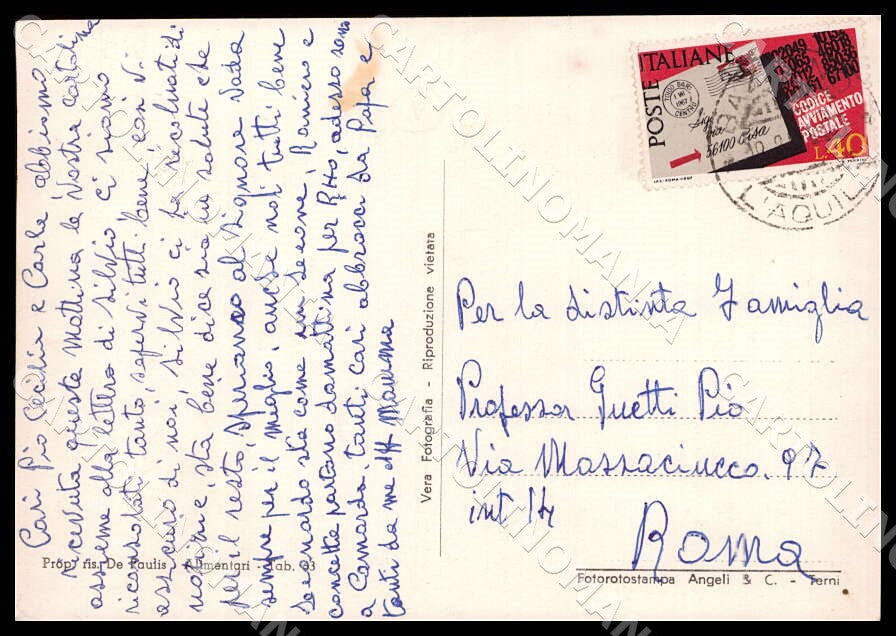 Cari Pio Cecilia e Carla abbiamo
ricevuta questa mattina la Vostra Cartolina
assieme alla lettera di Silvio ci siamo
riconsolati tanto, sapervi tutti bene così Vi
assicuro di noi Silvio ci fa
sta bene dice sia in salute che
per il resto, speriamo al Signore vada
sempre per il meglio, anche noi tutti bene
Leonardo sta come un Leone, Raniero e
Concetta partono domattina per adesso sono
a Camarda. tanti cari abbracci da Papa e
tanti da me aff Mamma
Prop. ris. De Paulis - Alimentari - Tab. 03
Vera Fotografia - Riproduzione vietata
POSTE ITALIANE
CENTRO
56100 Pisa
1
CODICE
AVVIAMENTO
POSTALE
L.40
L'AQUILA
Per la distinta Famiglia
Professor Guetti Pio
Via Massaciucco. 97
int 14
Roma
Fotorotostampa Angeli & C. - Terni
CARTOLINOMANIA